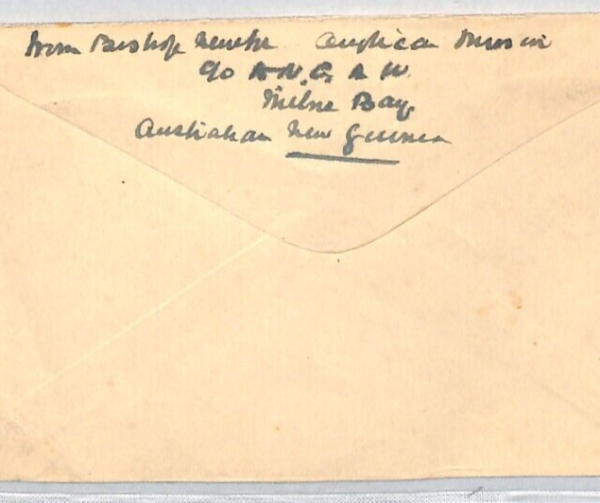 from Bishop Newton Anglican Mission
c/o A.N.G.A.U.
Milne Bay.
Australian New Guinea